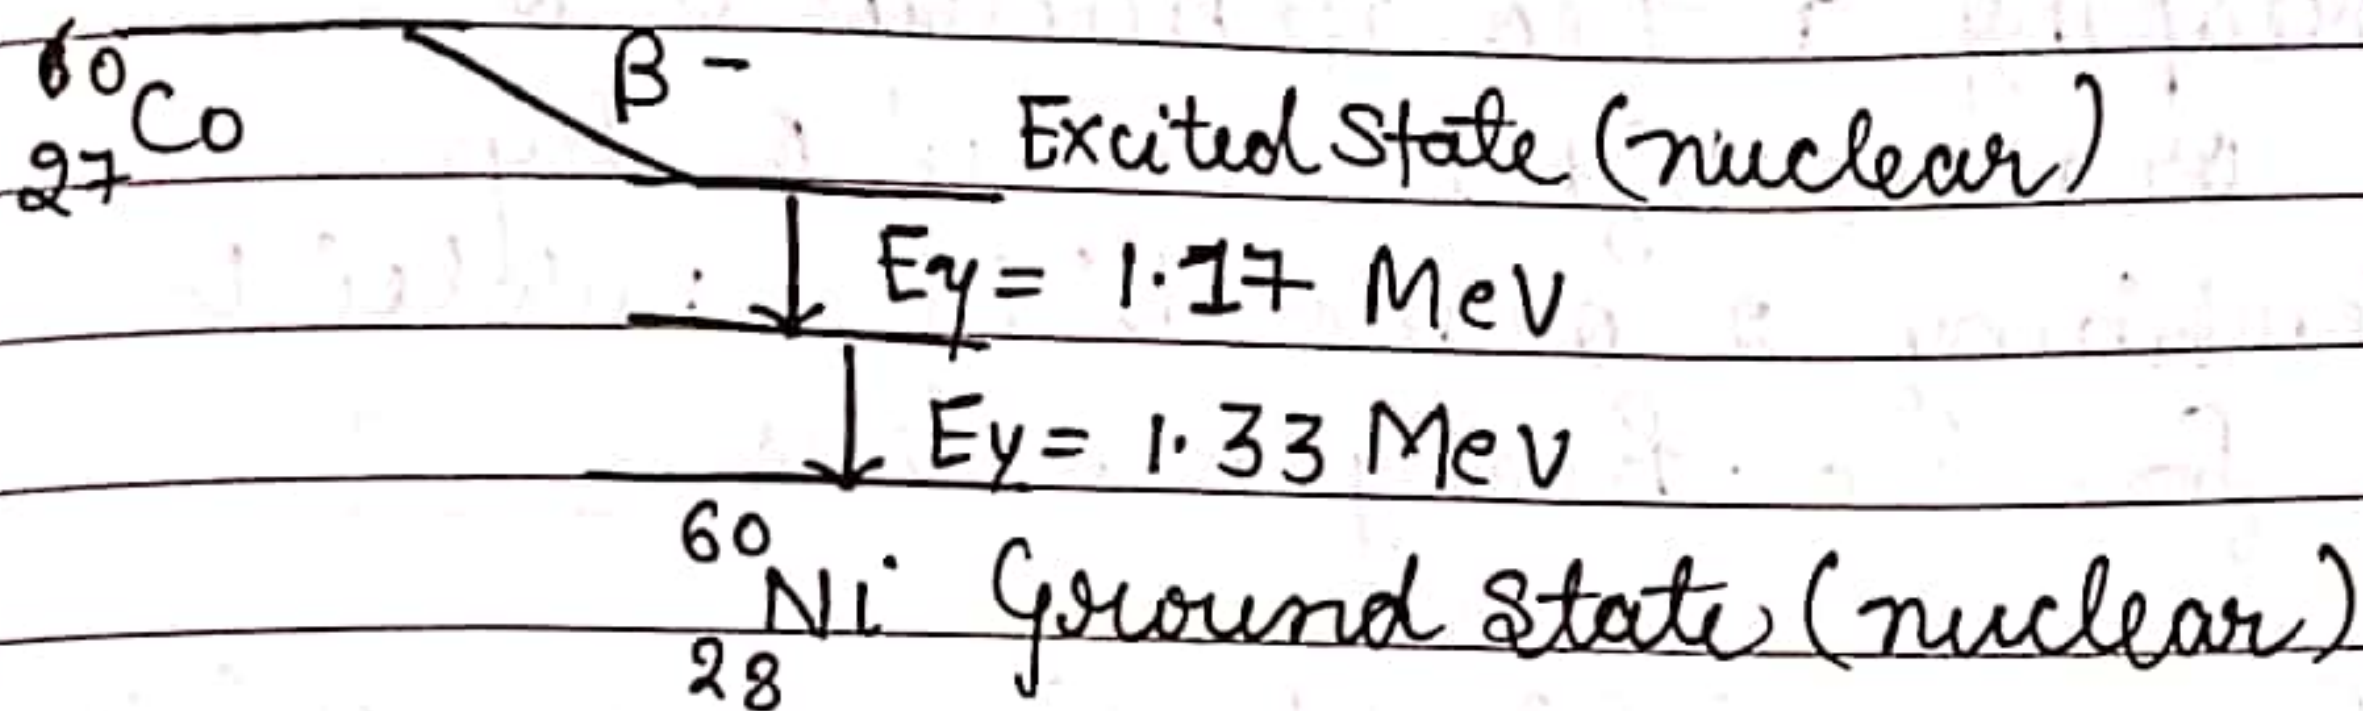 60
27Co β - Excited State (nuclear)
Eγ = 1.17 MeV
Eγ = 1.33 MeV
60
28Ni Ground State (nuclear)